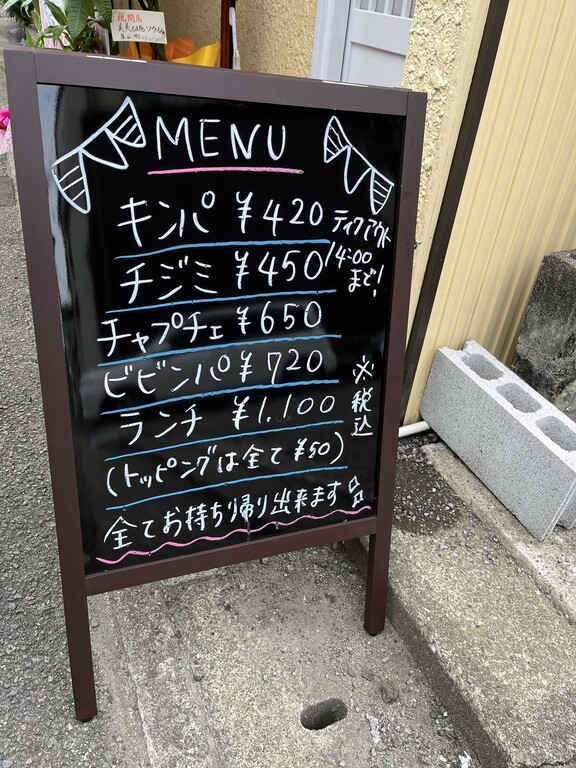 祝開店
MENU
キンパ ¥420
チジミ ¥450
チャプチェ ¥650
ビビンパ ¥720
ランチ ¥1,100
(トッピングは全て ¥50)
全てお持ち帰り出来ます
テイクアウト
14:00
まで!
※税込